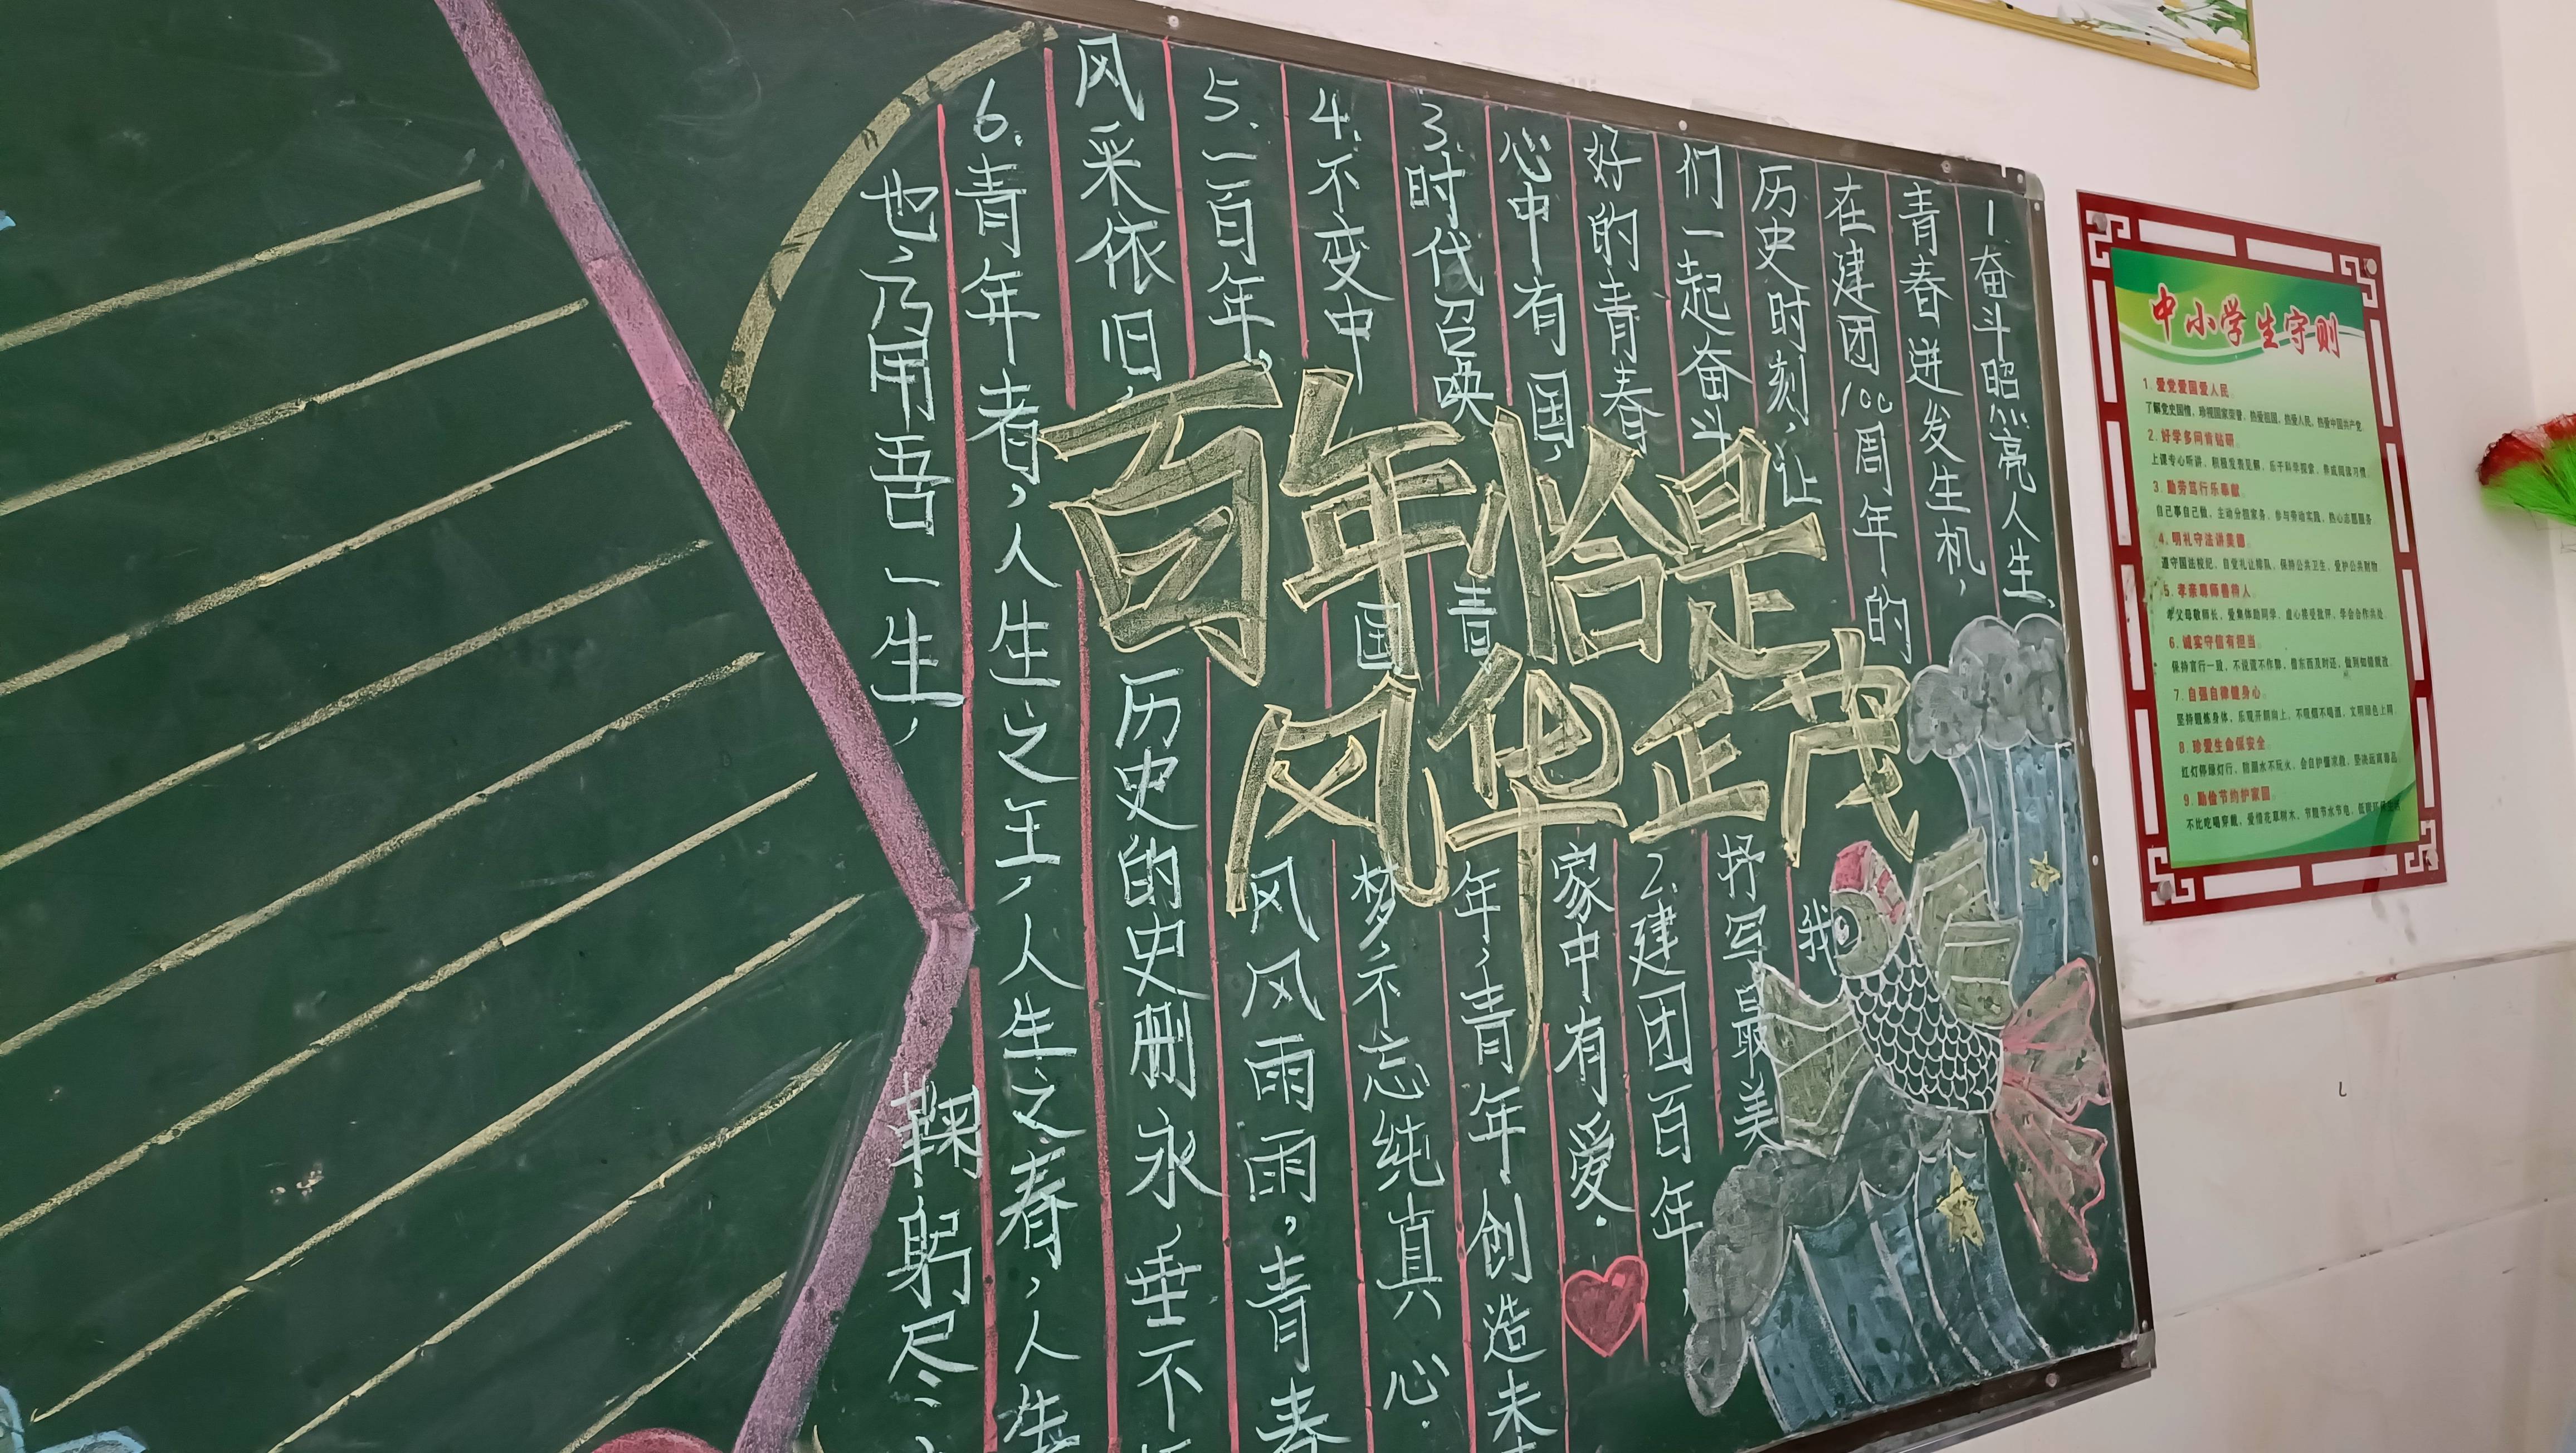 百年恰是
风华正茂
1.奋斗昭照亮人生、
青春迸发生机,
在建团100周年的
历史时刻,让我
们一起奋斗抒写最美
好的青春 2.建团百年,
心中有国,家中有爱.
3.时代召唤青年,青年创造未
4.不变中国梦,不忘纯真心.
5.一百年,风风雨雨,青春
风采依旧,历史的史册永,垂不
6.青年者,人生之王,人生之春,人生
也,乃用吾一生,鞠躬尽
中小学生守则
1. 爱党爱国爱人民。
了解党史国情,珍视国家荣誉,热爱祖国,热爱人民,热爱中国共产党。
2. 好学多问肯钻研。
上课专心听讲,积极发表见解,乐于科学探索,养成阅读习惯。
3. 勤劳笃行乐奉献。
自己事自己做,主动分担家务,参与劳动实践,热心志愿服务。
4. 明礼守法讲美德。
遵守国法校纪,自觉礼让排队,保持公共卫生,爱护公共财物。
5. 孝亲尊师善待人。
孝父母敬师长,爱集体助同学,虚心接受批评,学会合作共处。
6. 诚实守信有担当。
保持言行一致,不说谎不作弊,借东西及时还,做到知错就改。
7. 自强自律健身心。
坚持锻炼身体,乐观开朗向上,不吸烟不喝酒,文明绿色上网。
8. 珍爱生命保安全。
红灯停绿灯行,防溺水不玩火,会自护懂求救,坚决远离毒品。
9. 勤俭节约护家园。
不比吃喝穿戴,爱惜花草树木,节粮节水节电,低碳环保生活。